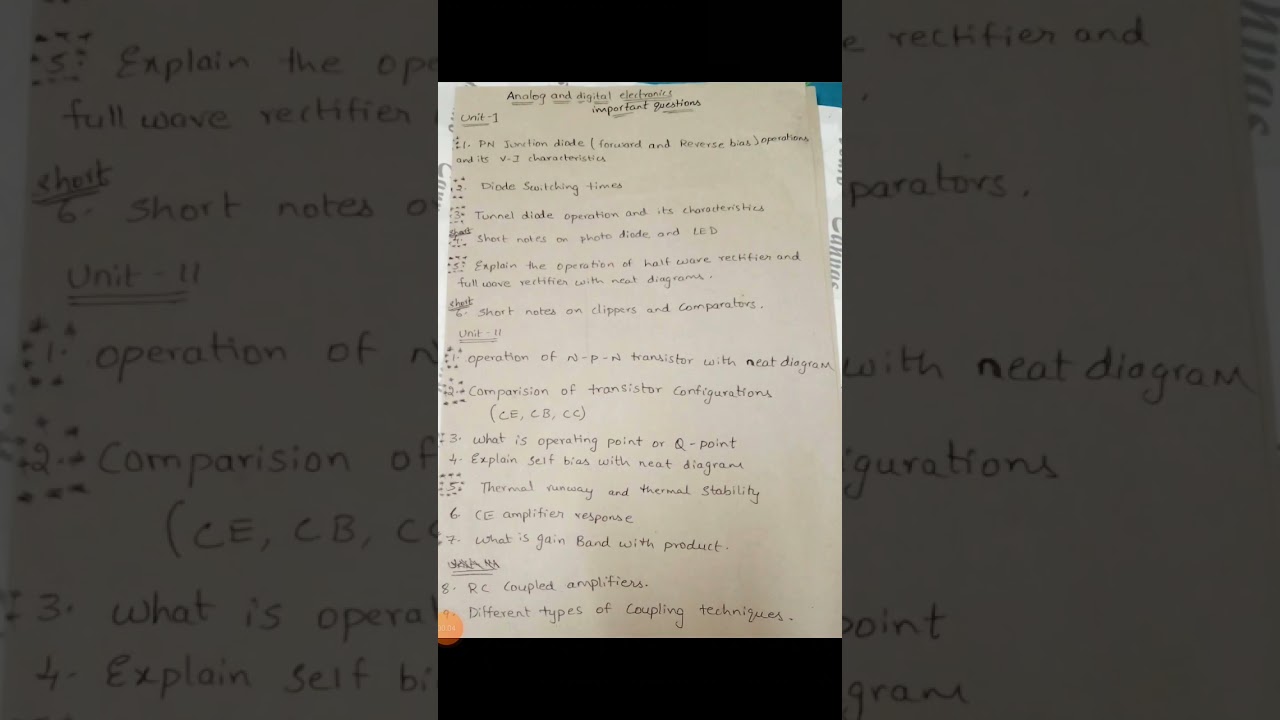 Analog and digital electronics
important questions
Unit-I
1. PN Junction diode (forward and Reverse bias) operations
and its V-I characteristics
2. Diode Switching times
3. Tunnel diode operation and its characteristics
short
4. short notes on photo diode and LED
5. Explain the operation of half wave rectifier and
full wave rectifier with neat diagrams.
short
6. short notes on clippers and comparators.
Unit-II
1. operation of N-P-N transistor with neat diagram
2. Comparision of transistor configurations
(CE, CB, CC)
3. what is operating point or Q-point
4. Explain self bias with neat diagram
5. Thermal runway and thermal stability
6. CE amplifier response
7. what is gain Band with product.
8. RC coupled amplifiers.
9. Different types of coupling techniques.